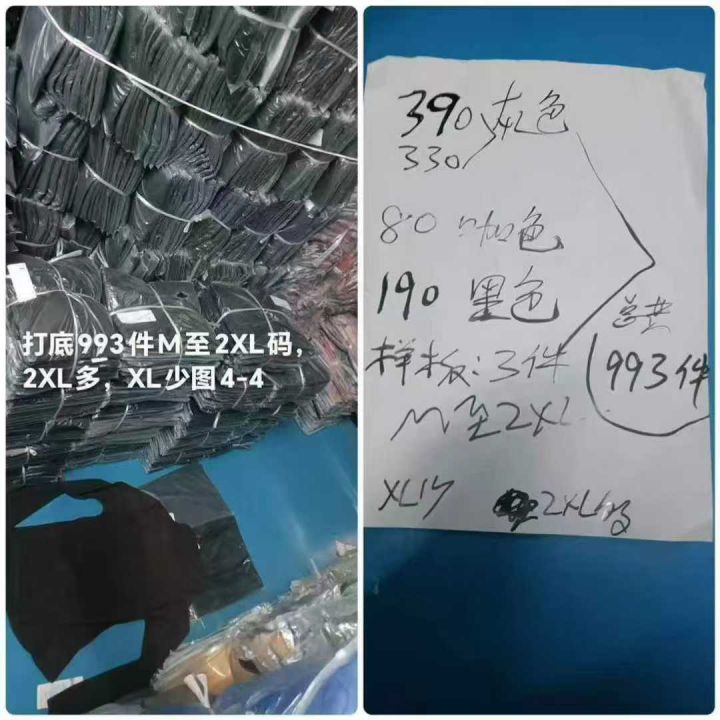 打底993件M至2XL码，
2XL多，XL少图4-4
390 灰色
330
80 咖色
190 黑色
总共
样板：3件
993件
M至2XL
XL少 2XL多